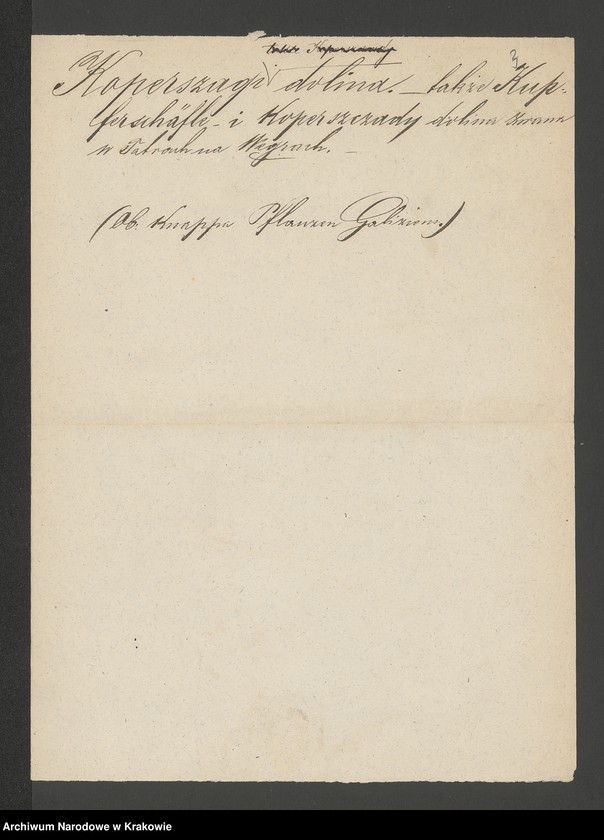 także Koperszady
3
Koperszagi dolina. – także Kup-
ferschäfle – i Koperszczady dolina zwana
w Tatrach na Węgrach. –
(Ob. Knappa Pflanzen Galiziens.)
Archiwum Narodowe w Krakowie